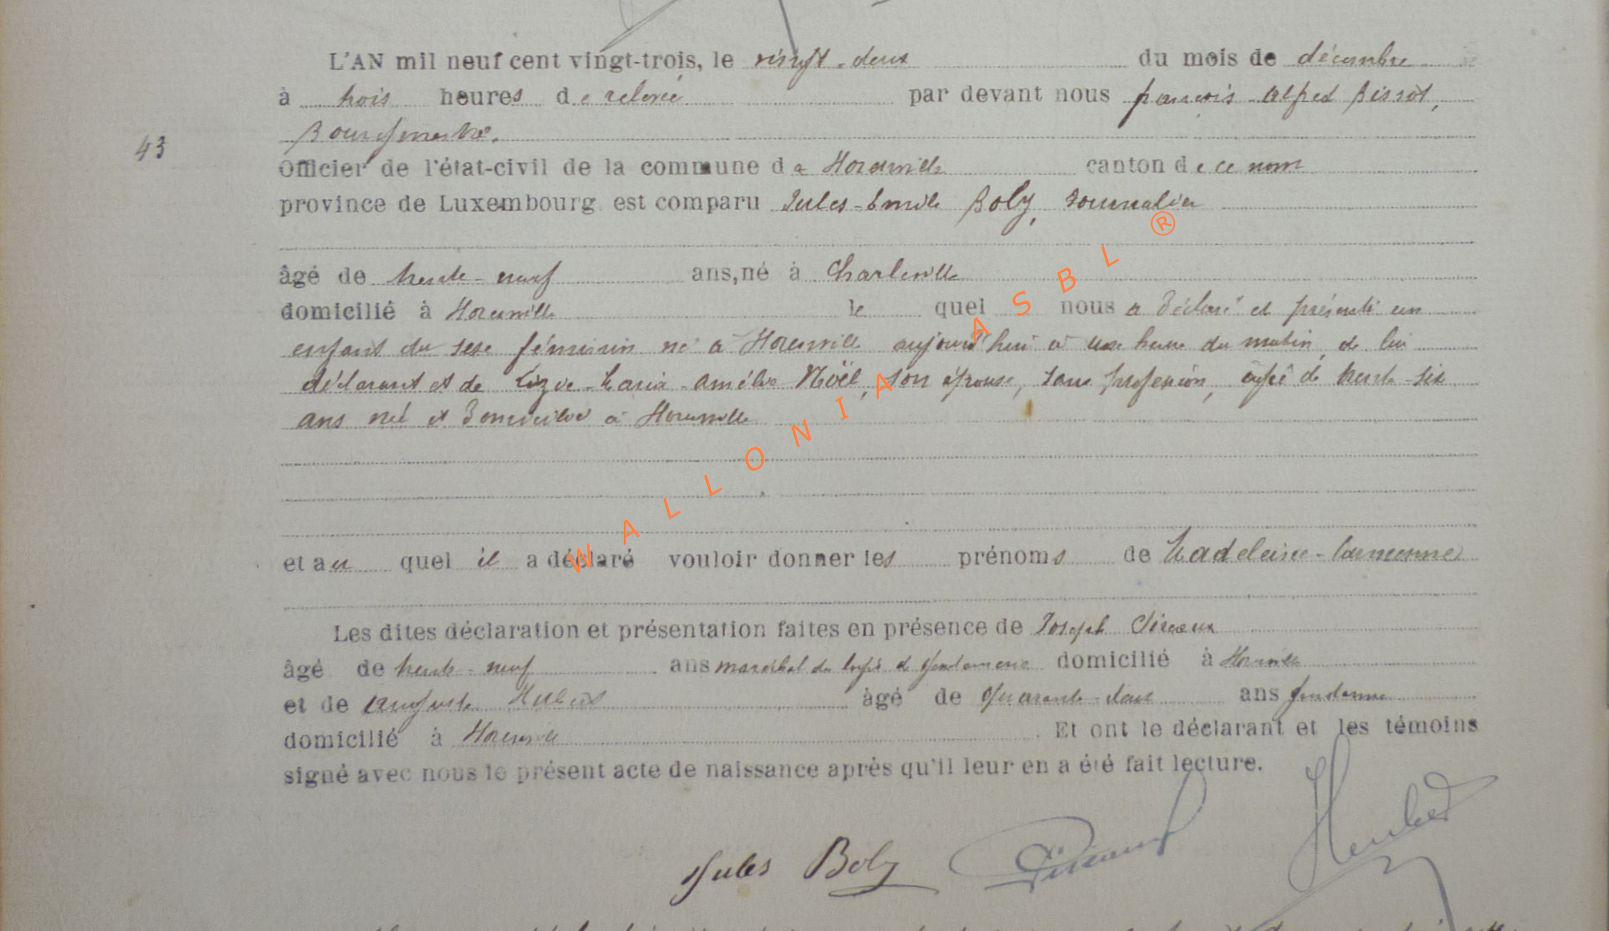 L'AN mil neuf cent vingt-trois, le vingt-deux du mois de décembre
à trois heures de relevée par devant nous françois Alfred Bissot,
Bourgmestre.
43
Officier de l'état-civil de la commune de Houville canton de ce nom
province de Luxembourg est comparu Jules-Emile Boly, Journalier
âgé de trente-neuf ans, né à Charleville
domicilié à le quel nous a déclaré et présenté un
enfant du sexe féminin né à aujourd'hui à une heure du matin, de lui
déclarant et de Maria-Amélie Noël, son épouse, sans profession, âgée de trente-six
ans née et domiciliée à
et au quel il a déclaré vouloir donner les prénoms de Madeleine-
Les dites déclaration et présentation faites en présence de Joseph
âgé de trente-neuf ans maréchal des logis de gendarmerie domicilié à
et de Auguste Hubert âgé de quarante-deux ans gendarme
domicilié à Et ont le déclarant et les témoins
signé avec nous le présent acte de naissance après qu'il leur en a été fait lecture.
Jules Boly Hubert
WALLONIA ASBL ®